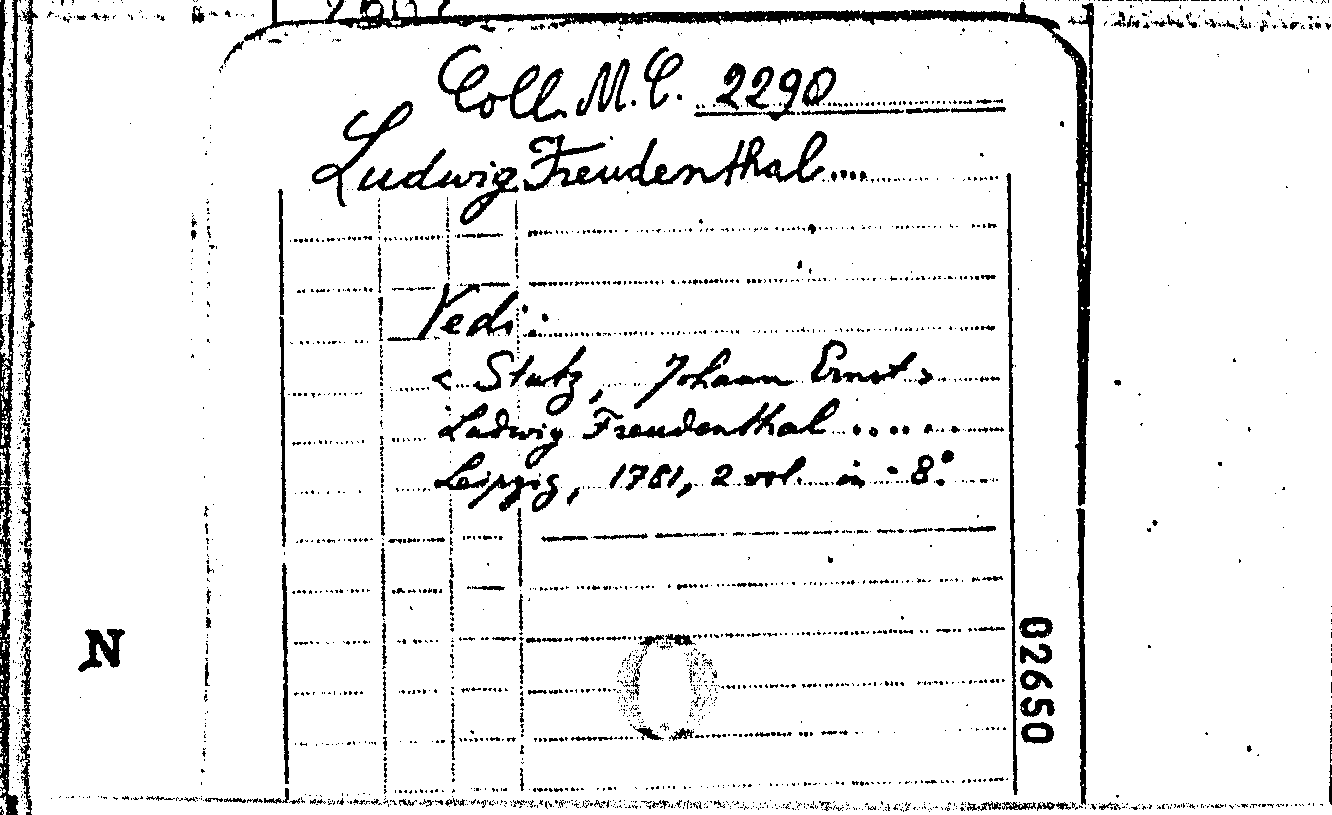 Coll. M.C. 2290
Ludwig Freudenthal....
Vedi:
< Stutz, Johann Ernst >
Ludwig Freudenthal .....
Leipzig, 1781, 2 vol. in - 8°.
02650
N